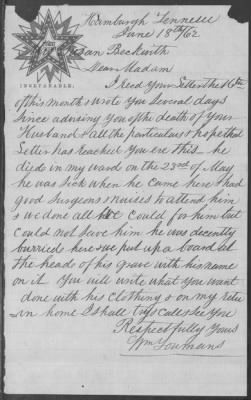 Hamburgh Tennesse
June 18th/62
Susan Beckwith
Dear Madam
I Recd Your Letter the 16th
of this month & Wrote You Several days
Since advising You of the death of Your
Husband & all the particulars & hope that
Letter has reached You ere this - he
died in my ward on the 23rd of May
he was Sick when he came here & had
good Surgeons & nurses to attend him
& we done all we could for him but
could not Save him he was decently
burried here we put up a board at
the head of his grave with his name
on it You will write what You want
done with his clothing & on my retur
n home I shall try & call & See You
Respectfully Yours
Wm Youmans
INSEPARABLE.